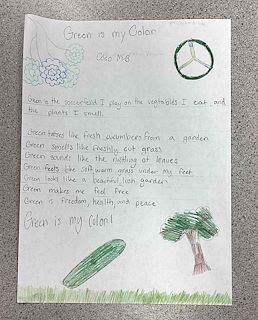 Green is my Color
Coco McB
Green is the soccerfield I play on the vegetables I eat and
the plants I smell.
Green tastes like fresh cucumbers from a garden
Green smells like freshly cut grass
Green sounds like the rustling of leaves
Green feels like soft warm grass under my feet
Green looks like a beautiful, lush garden
Green makes me feel free
Green is freedom, health, and peace
Green is my Color!